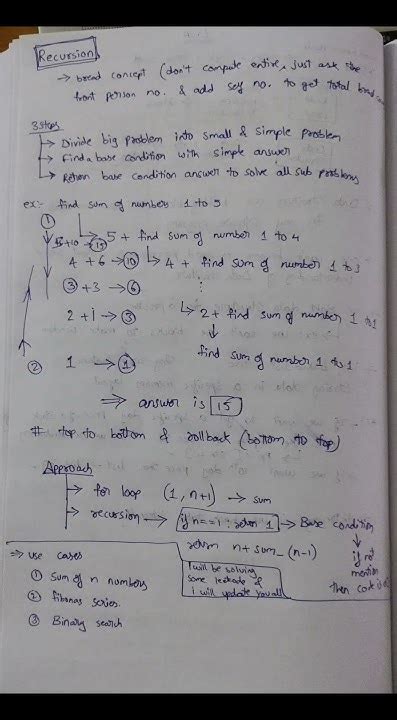 Recursion
→ bread concept (don't compute entire, just ask the
front person no. & add self no. to get total bread
3 steps
→ Divide big problem into small & simple problem
→ find a base condition with simple answer
→ Return base condition answer to solve all sub problems
ex:- find sum of numbers 1 to 5
①
5 + find sum of number 1 to 4
5+10 → 15
4 + 6 → 10
4 + find sum of number 1 to 3
3 + 3 → 6
:
2 + 1 → 3
2 + find sum of number 1 to 1
find sum of number 1 to 1
② 1 → 1
⇒ answer is 15
# top to bottom & rollback (bottom to top)
Approach
→ for loop (1, n+1) → sum
→ recursion → if n==1 : return 1 → Base condition
return n + sum_(n-1)
if not
mention
then code
⇒ use cases
① sum of n numbers
② fibonas series.
③ Binary search
I will be solving
some leetcode &
I will update you all